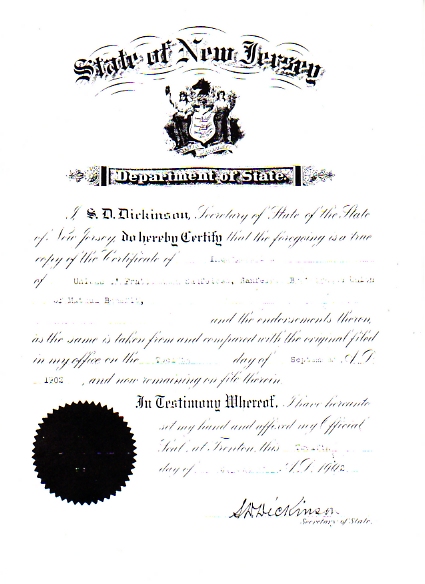 State of New Jersey
Department of State.
I, S. D. Dickinson, Secretary of State of the State
of New Jersey, do hereby Certify that the foregoing is a true
copy of the Certificate of
of
or Mutual Benefit,
and the endorsements thereon,
as the same is taken from and compared with the original filed
in my office on the day of September A.D.
1902 , and now remaining on file therein.
In Testimony Whereof, I have hereunto
set my hand and affixed my Official
Seal, at Trenton, this
day of A.D. 1902.
S.D. Dickinson
Secretary of State.